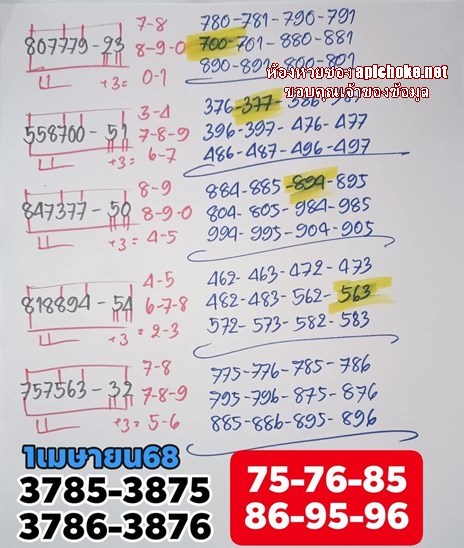 7-8
807779-23
8-9-0
+3= 0-1
780-781-790-791
700-701-880-881
890-891-800-801
ห้องหวยซองapichoke.net
ขอบคุณเจ้าของข้อมูล
3-4
558700-51
7-8-9
+3= 6-7
376-377-386-387
396-397-476-477
486-487-496-497
8-9
847377-50
8-9-0
+3= 4-5
884-885-894-895
804-805-984-985
994-995-904-905
4-5
818894-54
6-7-8
+3= 2-3
462-463-472-473
482-483-562-563
572-573-582-583
7-8
757563-32
7-8-9
+3= 5-6
775-776-785-786
795-796-875-876
885-886-895-896
1เมษายน68
3785-3875
3786-3876
75-76-85
86-95-96